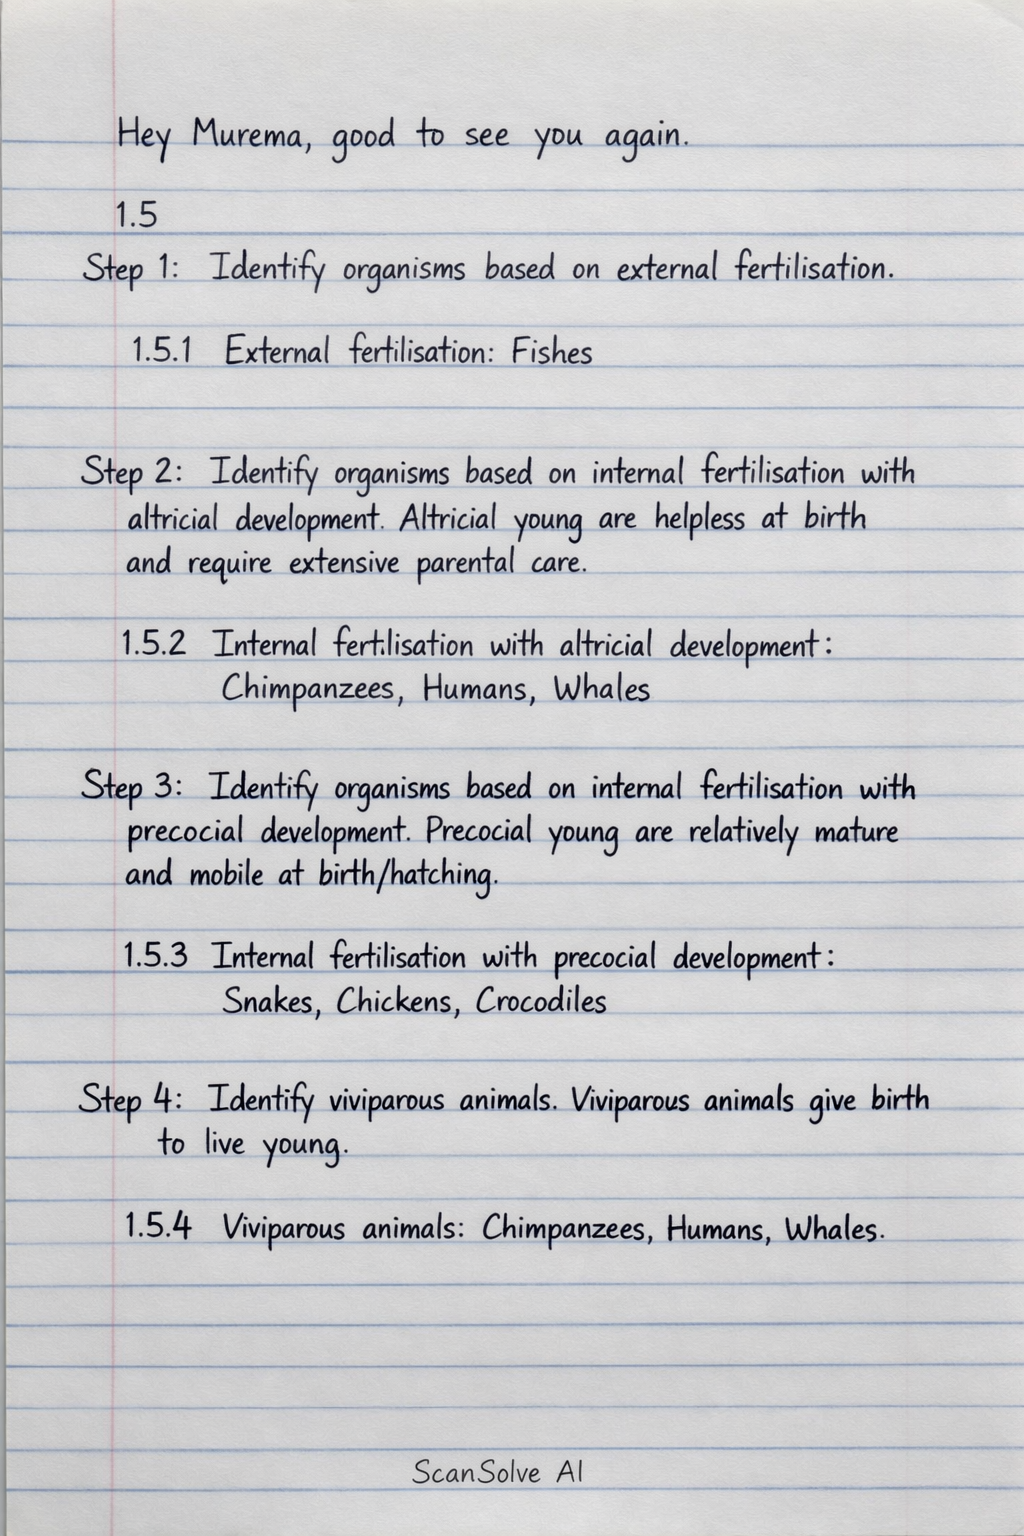 Hey Murema, good to see you again.
1.5
Step 1: Identify organisms based on external fertilisation.
1.5.1 External fertilisation: Fishes
Step 2: Identify organisms based on internal fertilisation with
altricial development. Altricial young are helpless at birth
and require extensive parental care.
1.5.2 Internal fertilisation with altricial development:
Chimpanzees, Humans, Whales
Step 3: Identify organisms based on internal fertilisation with
precocial development. Precocial young are relatively mature
and mobile at birth/hatching.
1.5.3 Internal fertilisation with precocial development:
Snakes, Chickens, Crocodiles
Step 4: Identify viviparous animals. Viviparous animals give birth
to live young.
1.5.4 Viviparous animals: Chimpanzees, Humans, Whales.
ScanSolve AI